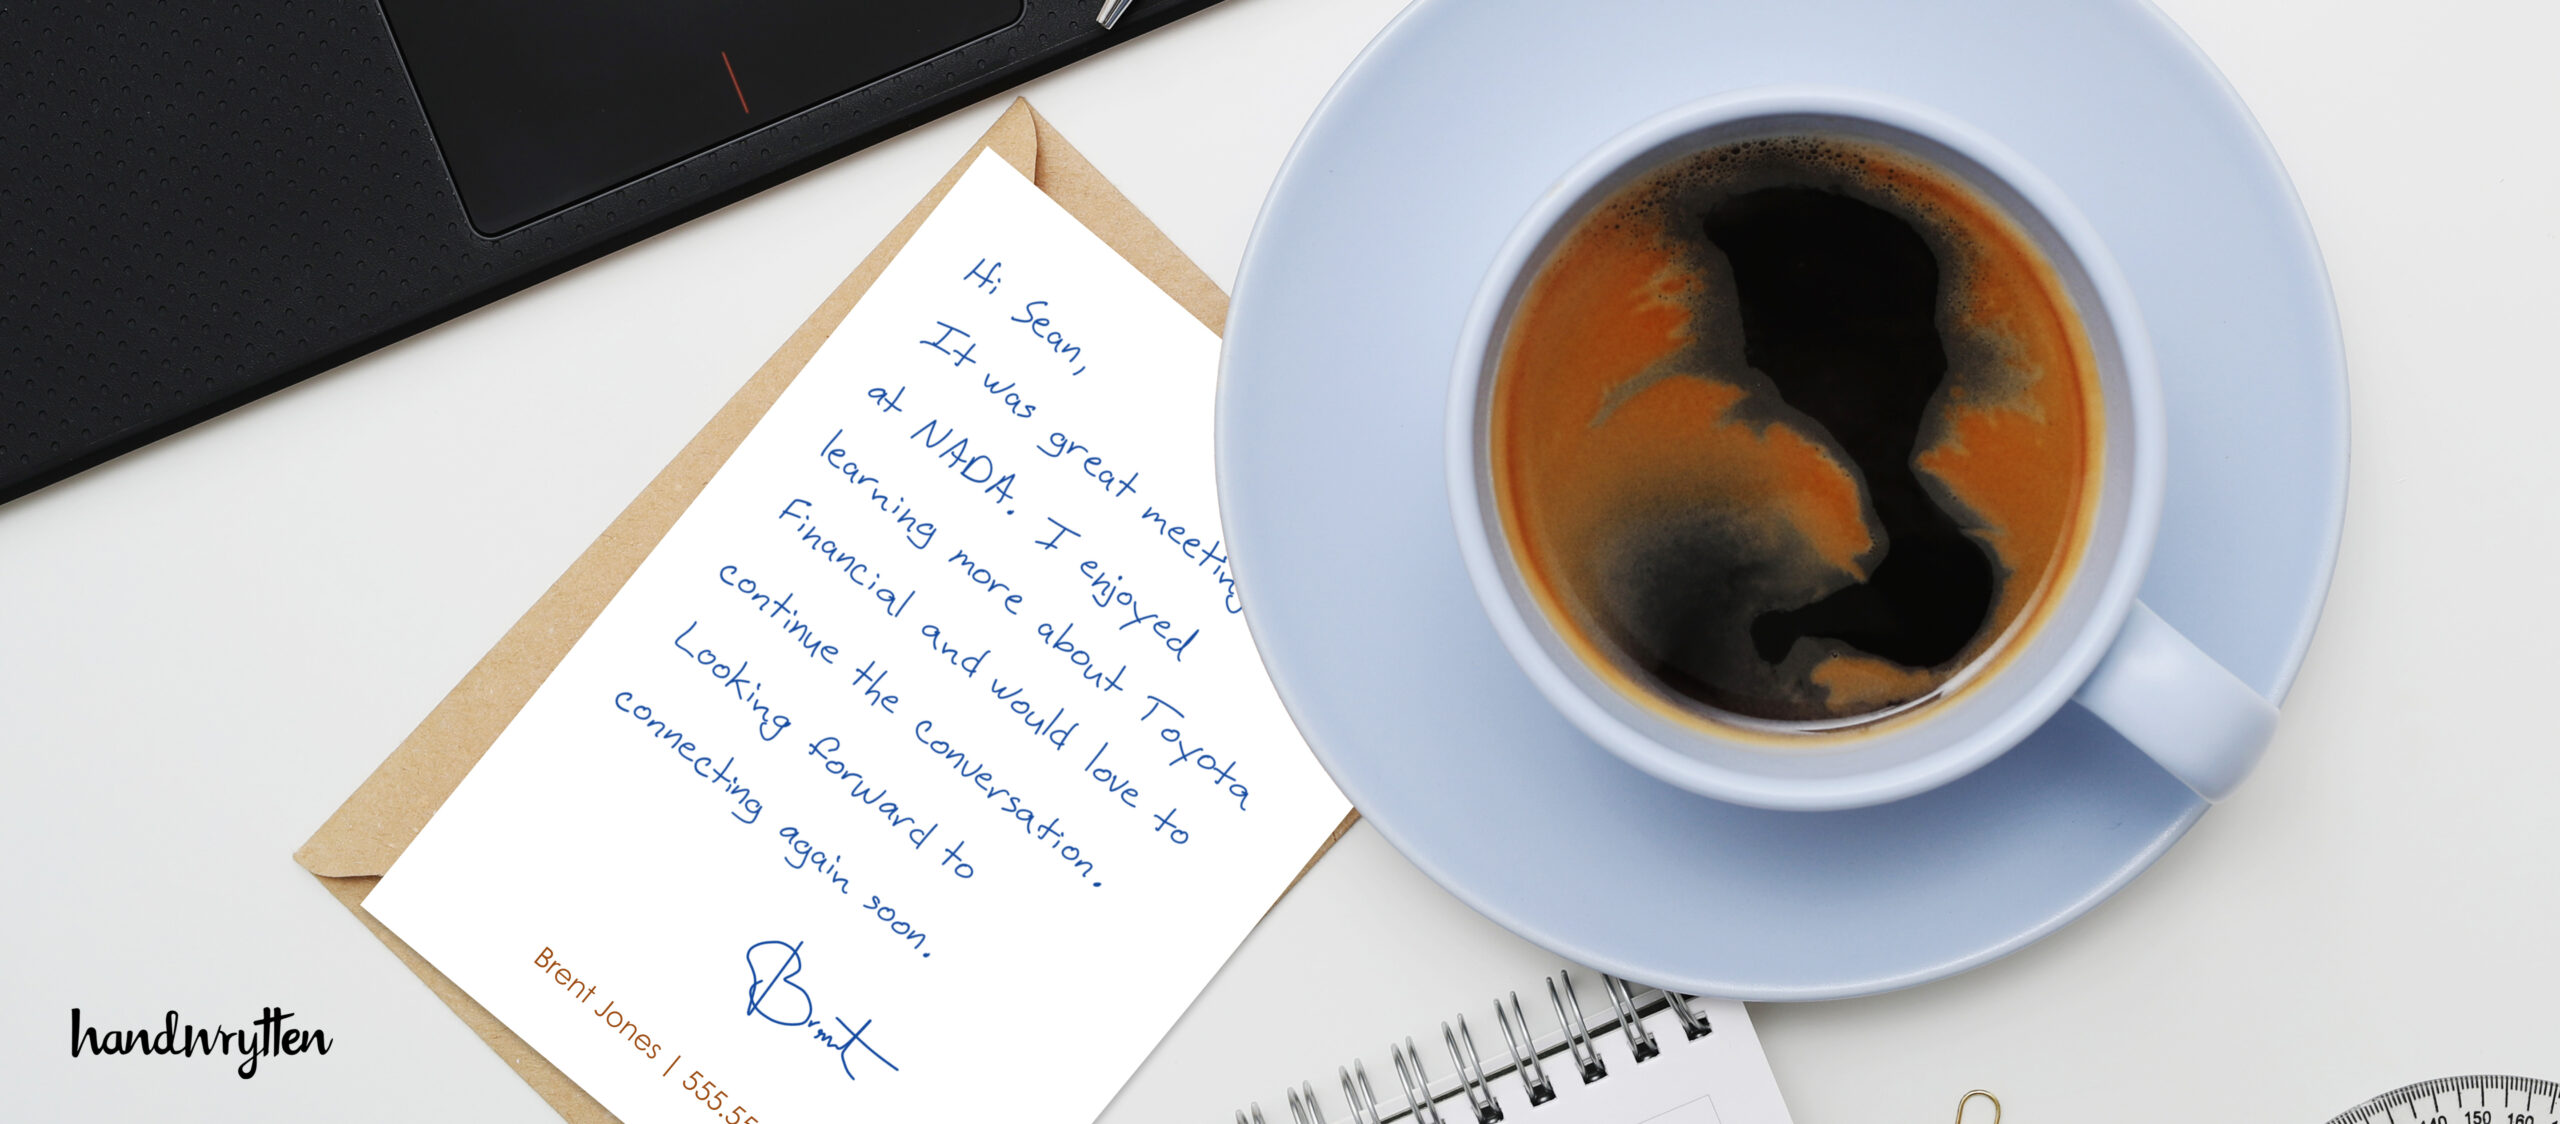 Hi Sean,
It was great meeting
at NADA. I enjoyed
learning more about Toyota
Financial and would love to
continue the conversation.
Looking forward to
connecting again soon.
Brent
Brent Jones | 555.55
handwrytten
140 150 160